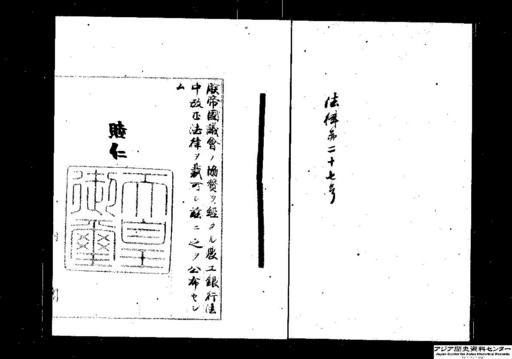 法律第二十七号
朕帝國議會ノ協賛ヲ經タル農工銀行法
中改正法律ヲ裁可シ茲ニ之ヲ公布セシ
ム
睦仁
天皇
御璽
アジア歴史資料センター
Japan Center for Asian Historical Records